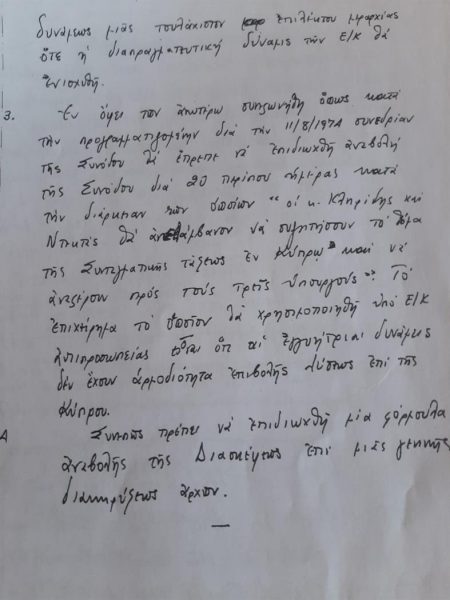 δυνάμεως μιᾶς τουλάχιστον ἐπιλέκτου μεραρχίας
ὅτε ἡ διαπραγματευτική δύναμις τῶν Ε/Κ θά
ἐνισχυθῆ.
3. Ἐν ὄψει των ἀνωτέρω συνεφωνήθη ὅπως κατά
τήν προγραμματισμένην διά τήν 11/8/1974 συνεδρίαν
τῆς Συνόδου θά ἔπρεπε νά ἐπιδιωχθῆ ἀναβολή
τῆς Συνόδου διά 20 περίπου ἡμέρας κατά
τήν διάρκειαν τῶν ὁποίων "οἱ κ. Κληρίδης καί
Ντενκτάς θά ἀνελάμβανον νά συζητήσουν τό θέμα
τῆς Συνταγματικῆς τάξεως ἐν Κύπρῳ" καί νά
ἀναφέρουν πρός τούς τρεῖς ὑπουργούς". Τό
ἐπιχείρημα τό ὁποῖον θά χρησιμοποιηθῆ ὑπό Ε/Κ
ἀντιπροσωπείας εἶναι ὅτι αἱ ἐγγυήτριαι δυνάμεις
δέν ἔχουν ἁρμοδιότητα ἐπιβολῆς λύσεως ἐπί τῆς
Κύπρου.
Συνεπῶς πρέπει νά ἐπιδιωχθῆ μία φόρμουλα
ἀναβολῆς τῆς Διασκέψεως ἐπί μιᾶς γενικῆς
διακηρύξεως ἀρχῶν.